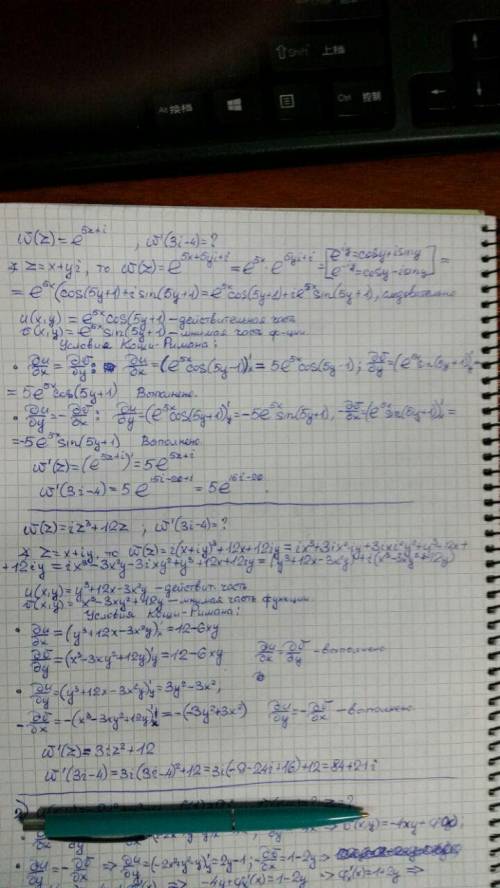 Shift 上档
Alt 换档
Ctrl 控制
W(z) = e^{5z+i} , W'(3i-4) = ?
z = x+yi, то W(z) = e^{5x+5yi+i} = e^{5x} · e^{5yi+i} = [e^{iy} = cosy+isiny e^{-iy} = cosy-isiny] =
= e^{5x}(cos(5y+1)+i sin(5y+1) = e^{5x}cos(5y+1)+ie^{5x}sin(5y+1), следовательно
u(x,y) = e^{5x}cos(5y+1) - действительная часть
v(x,y) = e^{5x}sin(5y+1) - мнимая часть ф-ции.
Условия Коши-Римана:
• ∂u/∂x = ∂v/∂y : ∂u/∂x = (e^{5x}cos(5y-1)'_x = 5e^{5x}cos(5y-1); ∂v/∂y = (e^{5x}sin(5y+1)'_y =
= 5e^{5x}cos(5y+1) Выполнено.
• ∂u/∂y = -∂v/∂x : ∂u/∂y = (e^{5x}cos(5y+1)'_y = -5e^{5x}sin(5y+1), -∂v/∂x = (e^{5x}sin(5y+1)' =
= -5e^{5x}sin(5y+1) Выполнено.
W'(z) = (e^{5z+i})' = 5e^{5z+i}
W'(3i-4) = 5e^{15i-20+i} = 5e^{16i-20}.
W(z) = iz³+12z , W'(3i-4) = ?
z = x+iy, то W(z) = i(x+iy)³+12x+12iy = ix³+3ix²iy+3ixi²y²+y³+12x+
+12iy = ix³-3x²y-3ixy²+y³+12x+12iy = (y³+12x-3x²y)+i(x³-3xy²+12y)
u(x,y) = y³+12x-3x²y - действит. часть
v(x,y) = x³-3xy²+12y - мнимая часть функции.
Условия Коши-Римана:
• ∂u/∂x = (y³+12x-3x²y)'_x = 12-6xy
∂v/∂y = (x³-3xy²+12y)'_y = 12-6xy ∂u/∂x = ∂v/∂y - выполнено
• ∂u/∂y = (y³+12x-3x²y)'_y = 3y²-3x²,
-∂v/∂x = -(x³-3xy²+12y)'_x = -(-3y²+3x²) ∂u/∂y = -∂v/∂x - выполнено.
W'(z) = 3iz²+12
W'(3i-4) = 3i(3i-4)²+12 = 3i(-9-24i+16)+12 = 84+21i
2)
• ∂u/∂y = -∂v/∂x ⇒ ∂u/∂y = (-2x²y-y)'_y = 2y-1; -∂v/∂x = 1-2y ⇒
⇒ -4y+φ'(x) = 1-2y ⇒ φ'(x) = 1+2y ⇒